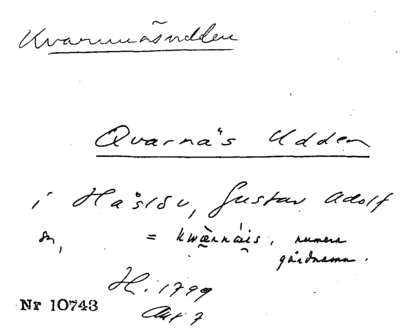 Kvarnnäsudden
Qvarnä's Udden
i Håslöv, Gustav Adolf
sn, = kwæ̀rnä̀is, numera
gårdnamn.
H. 1799
Akt 7
Nr 10743